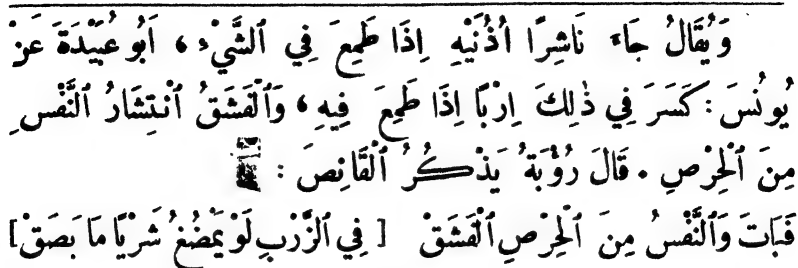 وَيُقَالُ جَاءَ نَاشِرًا اُذُنَيْهِ اِذَا طَمِعَ فِي ٱلشَّيْءِ ، اَبُو عُبَيْدَةَ عَنْ
يُونُسَ : كَسَرَ فِي ذٰلِكَ اِرْبًا اِذَا طَمِعَ فِيهِ ، وَٱلْفَشَقُ ٱنْتِشَارُ ٱلنَّفْسِ
مِنَ ٱلْحِرْصِ . قَالَ رُؤْبَةُ يَذْكُرُ ٱلْقَانِصَ :
فَبَاتَ وَٱلنَّفْسُ مِنَ ٱلْحِرْصِ ٱلْفَشَقْ [ فِي ٱلزَّرْبِ لَوْ يَمْضُغُ شَرْيًا مَا بَصَقْ ]